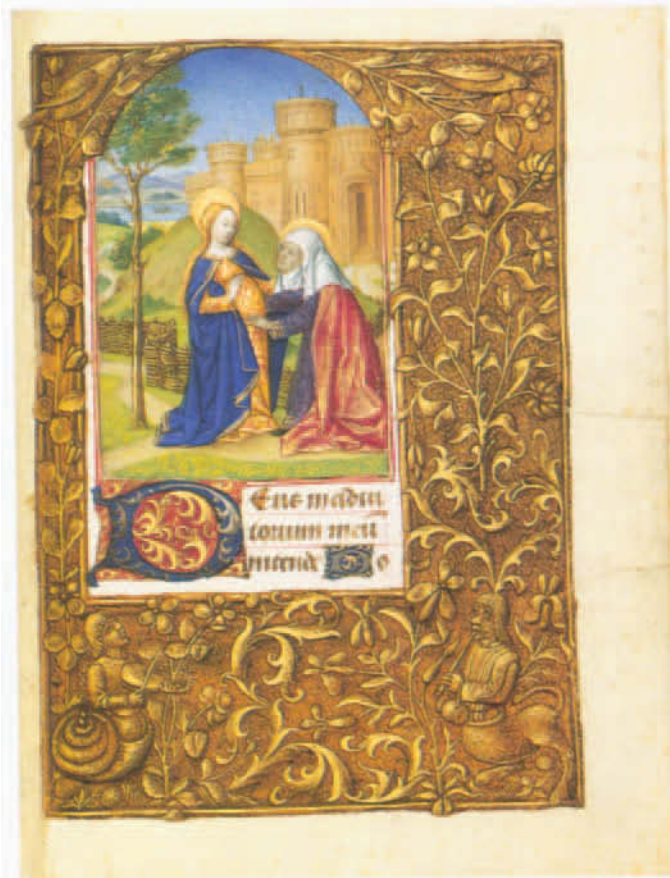 DEus in adiu
torium meu
intende Do